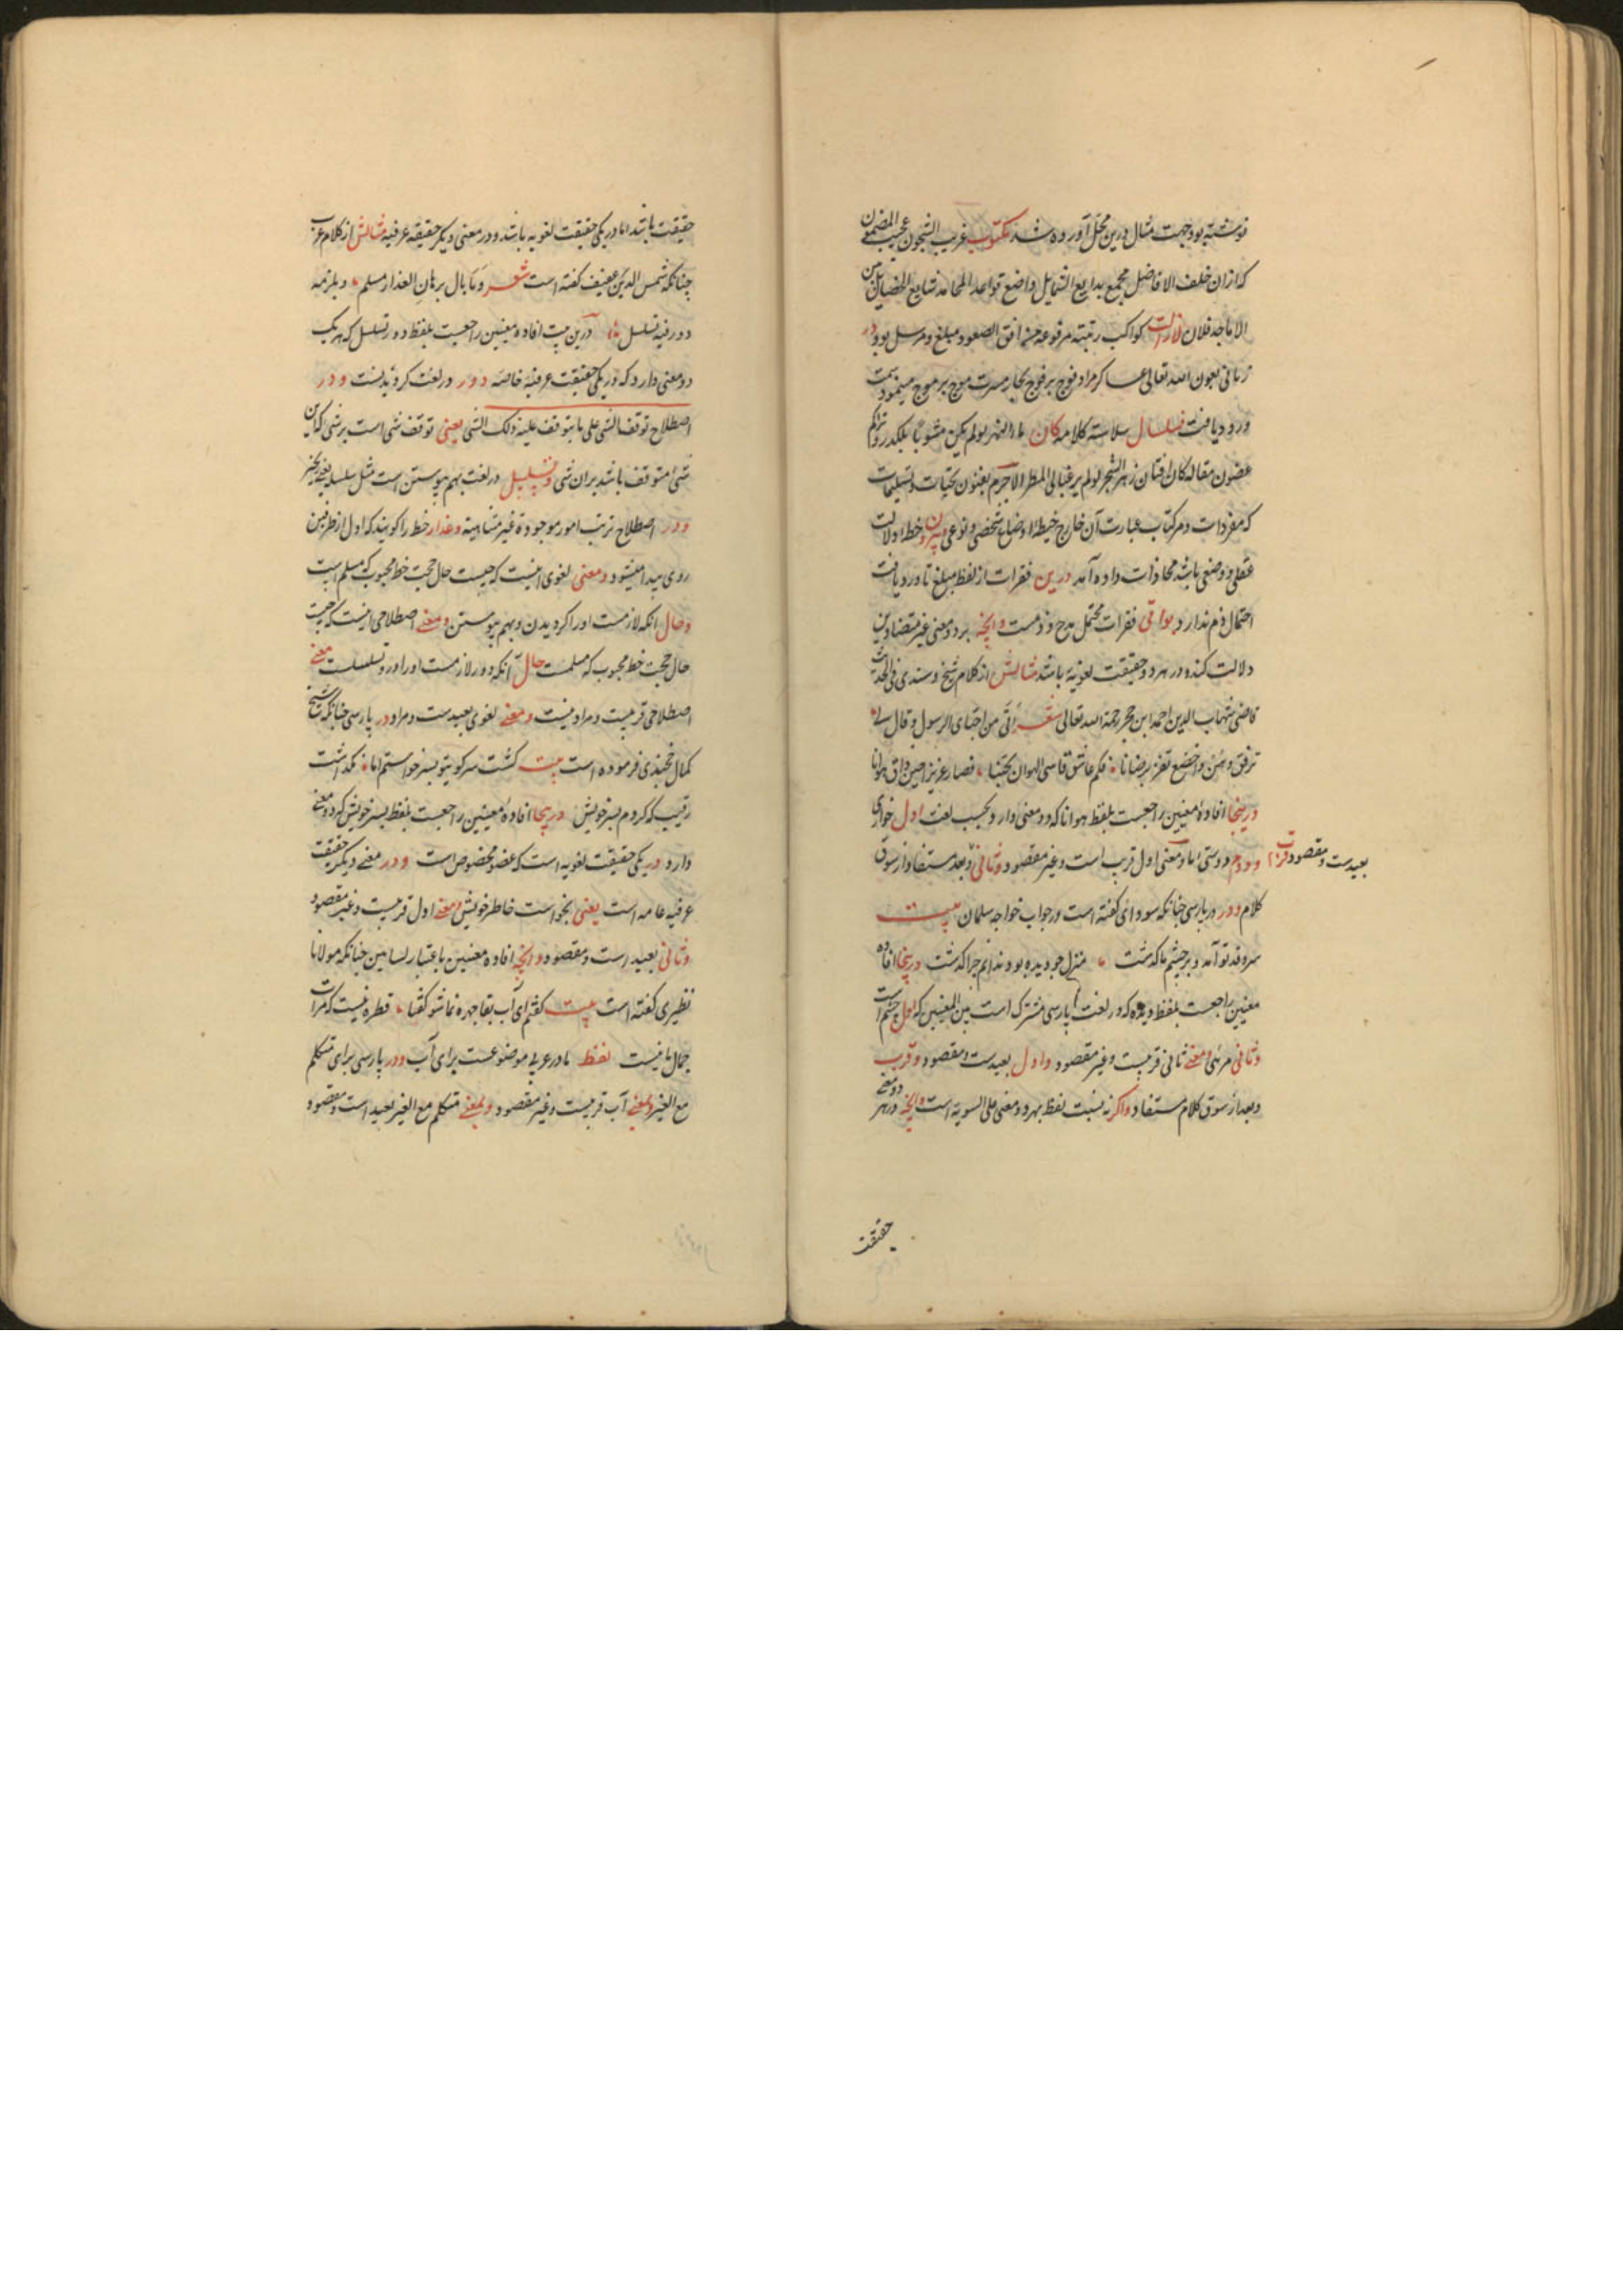 نوشته بود جهت مثال درین محل آورده شد مکتوب غریب الشجون عجیب المضمون
که ازان خلف الافاضل مجمع بدایع الشمایل واضع قواعد المحامد شایع الخصایل من
الاماجد فلان لازالت کواکب رتبته مرفوعة من افق الصعود مبلغ ومرسل بود در
زمانی بعون الله تعالی عساکر مراد فوج بر فوج بحار مسرت موج بر موج مینمود سمت
ورود یافت سلسال سلاسة کلامه کان ماء النهر لو لم یکن مشوبا بکدر وتراکم
غصون مقاله کان افنان زهر الشجر لو لم یرغبا لی المطر لاجرم بعنون تحیات وتسلیمات
که مفردات ومرکبات عبارت آن خارج خیطهٔ اوضاع شخصی ونوعی وبیرون خطهٔ دلالت
عقلی ووضعی باشد محاذات داده آمد درین فقرات از لفظ مبلغ تا ورود یافت
احتمال ذم ندارد وبواقی فقرات محتمل مدح وذمست وانچه بر دو معنی غیر متضادین
دلالت کند ودر هر دو حقیقت لغویه باشد مثالش از کلام شیخ وسندی فی الحدیث
قاضی شهاب الدین احمد ابن حجر رحمة الله تعالی شعر اتی من احبای الرسول وقال لی
ترفق وهن واخضع تفز برضانا فکم عاشق قاسی الهوان بحبنا فصار عزیزا حین ذاق هوانا
درینجا افادهٔ معنیین راجعست بلفظ هوانا که دو معنی دارد بحسب لغت اول خواری
ودوم دوستی اما معنی اول قریب است وغیر مقصود وثانی بعد مستفاد از سوق
بعیدست ومقصود قرب
کلام ودر پارسی چنانکه سودائی گفته است در جواب خواجه سلمان بیت
سرو قد تو آمد وبر چشم ما گذشت منزل چو دیده بود ندانم چرا گذشت درینجا افاده
معنیین راجعست بلفظ دیده که در لغت پارسی مشترک است بین المعنیین که اول چشم است
وثانی مرئی ومعنی ثانی قریبست وغیر مقصود واول بعیدست ومقصود وقرب
وبعد از سوق کلام مستفاد واگر نه نسبت لفظ بهر دو معنی علی السویة است وانچه در هر دو معنی
حقیقت
حقیقت باشد اما در یکی حقیقت لغویه باشد ودر معنی دیگر حقیقة عرفیه مثالش از کلام عرب
چنانکه شمس الدین عفیف گفته است شعر وما بال برهان العذار مسلم ویلزمه
دور وفیه تسلسل درین بیت افاده معنیین راجعست بلفظ دور وتسلسل که هر یک
دو معنی دارد که در یکی حقیقت عرفیهٔ خاصه دور در لغت گردیدنست ودر
اصطلاح توقف الشی علی ما یتوقف علیه ذلک الشی یعنی توقف شی است بر شی که این
شی متوقف باشد بران شی وتسلسل در لغت بهم پیوستن است مثل سلسله یعنی زنجیر
ودر اصطلاح ترتب امور موجودة غیر متناهیة وعذار خط را گویند که اول از طرفین
روی پیدا میشود ومعنی لغوی اینست که چیست حال حجت خط محبوب که مسلم است
وحال انکه لازمست اورا گردیدن وبهم پیوستن ومعنی اصطلاحی اینست که چیست
حال حجت خط محبوب که مسلمست حال آنکه دور لازمست اورا ودر وتسلسلست معنی
اصطلاحی قریبست ومراد نیست ومعنی لغوی بعیدست ومراد ودر پارسی چنانکه شیخ
کمال خجندی فرموده است بیت گشت سر کوی تو بسر خواستم اما نگذاشت
رقیب که کردم بسر خویش درینجا افادهٔ معنیین راجعست بلفظ بسر خویش که دو معنی
دارد در یکی حقیقت لغویه است که عضو مخصوص است ودر معنی دیگر حقیقت
عرفیه عامه است یعنی بخواست خاطر خویش ومعنی اول قریبست وغیر مقصود
وثانی بعید است ومقصود وانچه افاده معنیین باعتبار لسانین چنانکه مولانا
نظیری گفته است بیت گفتم ای آب بقا چهره نما شو گفتا قطره نیست که مرات
جمال ما نیست لفظ ما در عربی موضوعست برای آب ودر پارسی برای متکلم
مع الغیر ومعنی آب قریبست وغیر مقصود ومعنی متکلم مع الغیر بعید است ومقصود